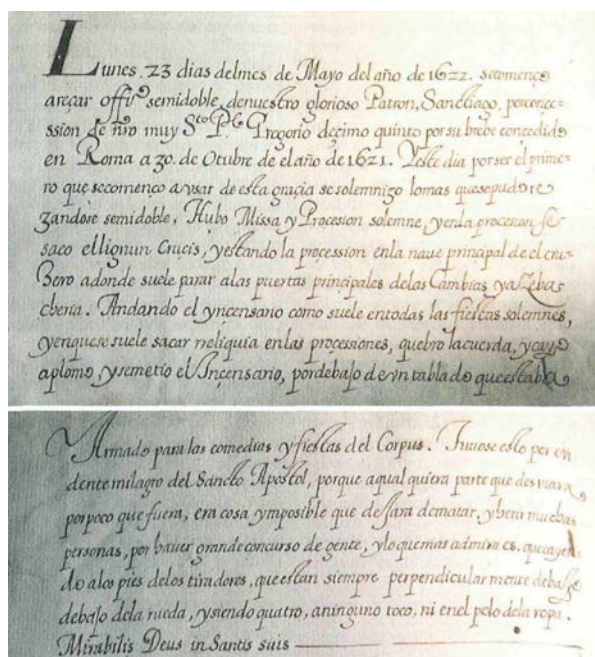 Lunes. 23 dias delmes de Mayo del año de 1622. secomenço
areçar offi.º semidoble, denuestro glorioso Patron, Sanctiago, porconce=
ssion de nr̃o muy S.to P.e Gregorio decimo quinto porsu brebe concedido
en Roma a 30. de Otubre de elaño de 1621. Yeste dia porser el prime=
ro que secomenço ausar de esta graçia sesolemnigo lomas quesepudo re
zandose semidoble, Hubo Missa y Procesion solemne, yenla procession se
saco ellignun Crucis, yestando la procession enla naue principal de el cru=
Zero adonde suele parar alas puertas principales delas Cambias yaZebas
cheria. Andando el yncensario como suele entodas las fiestas solemnes,
yenquese suele sacar reliquia enlas processiones, quebro lacuerda, ycayo
aplomo, ysemetio el Ancensario, pordebajo de vn tablado queestaba
Armado para las comedias y fiestas del Corpus. Tuuose esto por eui
dente milagro del Sancto Apostol, porque aqual quiera parte que desuiara,
porpoco que fuera, era cosa ymposible que dejara dematar, yherir muchas
personas, por hauer grande concurso de gente, ylo quemas admira es, quecayen
do alos pies delos tiradores, queestan siempre perpendicular mente debajo
debajo dela rueda, ysiendo quatro, aninguno toco, ni enel pelo dela ropa.
Mirabilis Deus in Santis suis